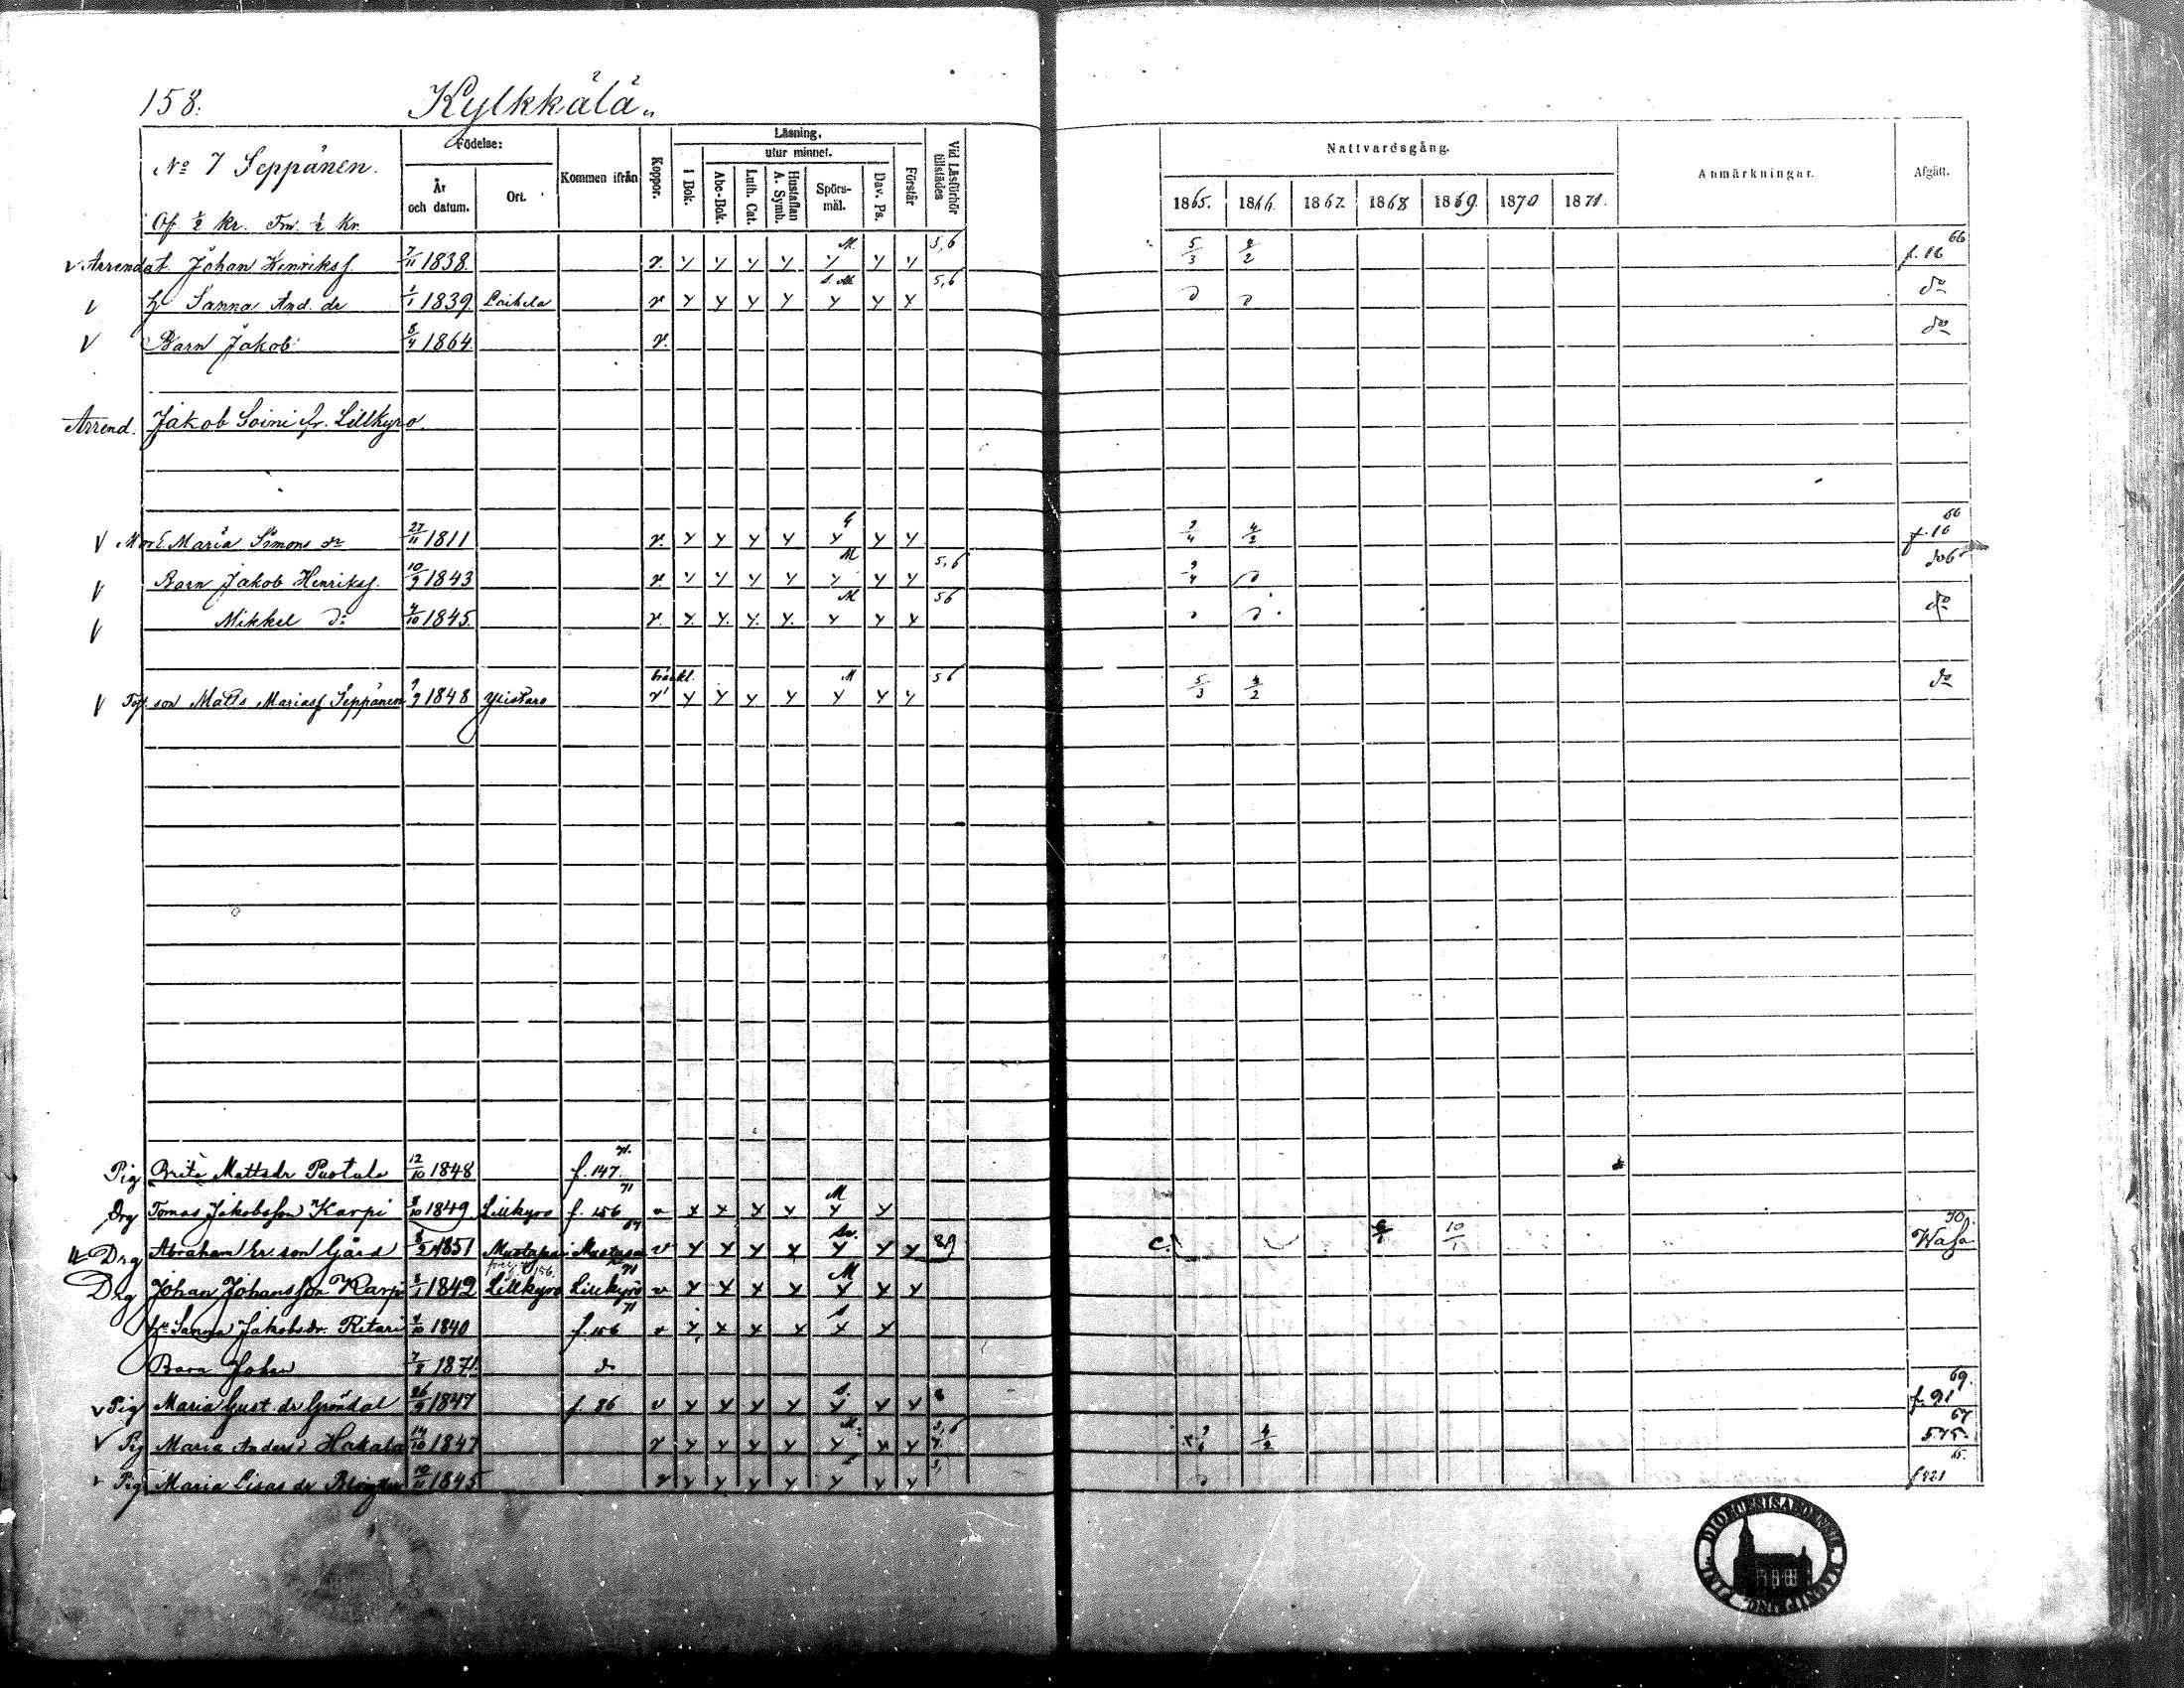 158. Kylkkälä
No 7 Seppänen.
Of. ½ kr. Tm. ½ kr.
Födelse: År och datum. Ort.
Kommen ifrån
Koppor.
Läsning.
utur minnet.
I Bok. Abc-Bok. Luth. Cat. Hustaflan A. Symb. Spörsmål. Dav. Ps. Förstår
Vid Läsförhör tillstädes
Nattvardsgång.
1865. 1866. 1867. 1868 1869. 1870 1871.
Anmärkningar.
Afgått.
v Arrendat. Johan Henrikss. 7/11 1838. v. y y y y M. y y y 5,6 5/3 4/2 f. 16 66
v h Sanna And. dr 1/1 1839 Laihela v y y y y y y y 5,6 do
v Barn Jakob 8/4 1864 v. do
Arrend. Jakob Soini fr. Lillkyro
v Mor E Maria Simons dr 27/11 1811 v. y y y y y y y 9/4 4/2 f. 16 66
v Barn Jakob Henrikss. 10/9 1843 v. y y y y M y y y 5,6 9/4
v Mikkel do 4/10 1845. v. y y. y. y. M y y y 56 do
v son Matts Mariass Seppänen 9/9 1848 Ylistaro v y y y y M y y y 56 5/3 4/2 do
Pig Brita Mattsdr Puotula 12/10 1848 f. 147. 71.
Drg Tomas Jakobsson Karpi 8/10 1849. Lillkyro f. 156 71 v y y y y M y y
Drg Abraham Er. son Gård 1851 v y y y y y y y 89 10/1 Wasa 70.
Drg Johan Johansson Karpi 1842 Lillkyro Lillkyro 71 v y y y y M y y y
hu Sanna Jakobsdr. Ritari 1840 f. 156 71 v y y y y y y
Barn Johan 1871. do
v Pig Maria Gust. dr Gröndal 26/9 1847 f. 86 v y y y y s. y y y 8 f. 91 69.
v Pig Maria Anders d Hakala 14/10 1847 v y y y y M. y y y 5,6 7. 4/2 575. 67
v Pig Maria Lisas dr 10/11 1845 v y y y y y y y 5, f 221